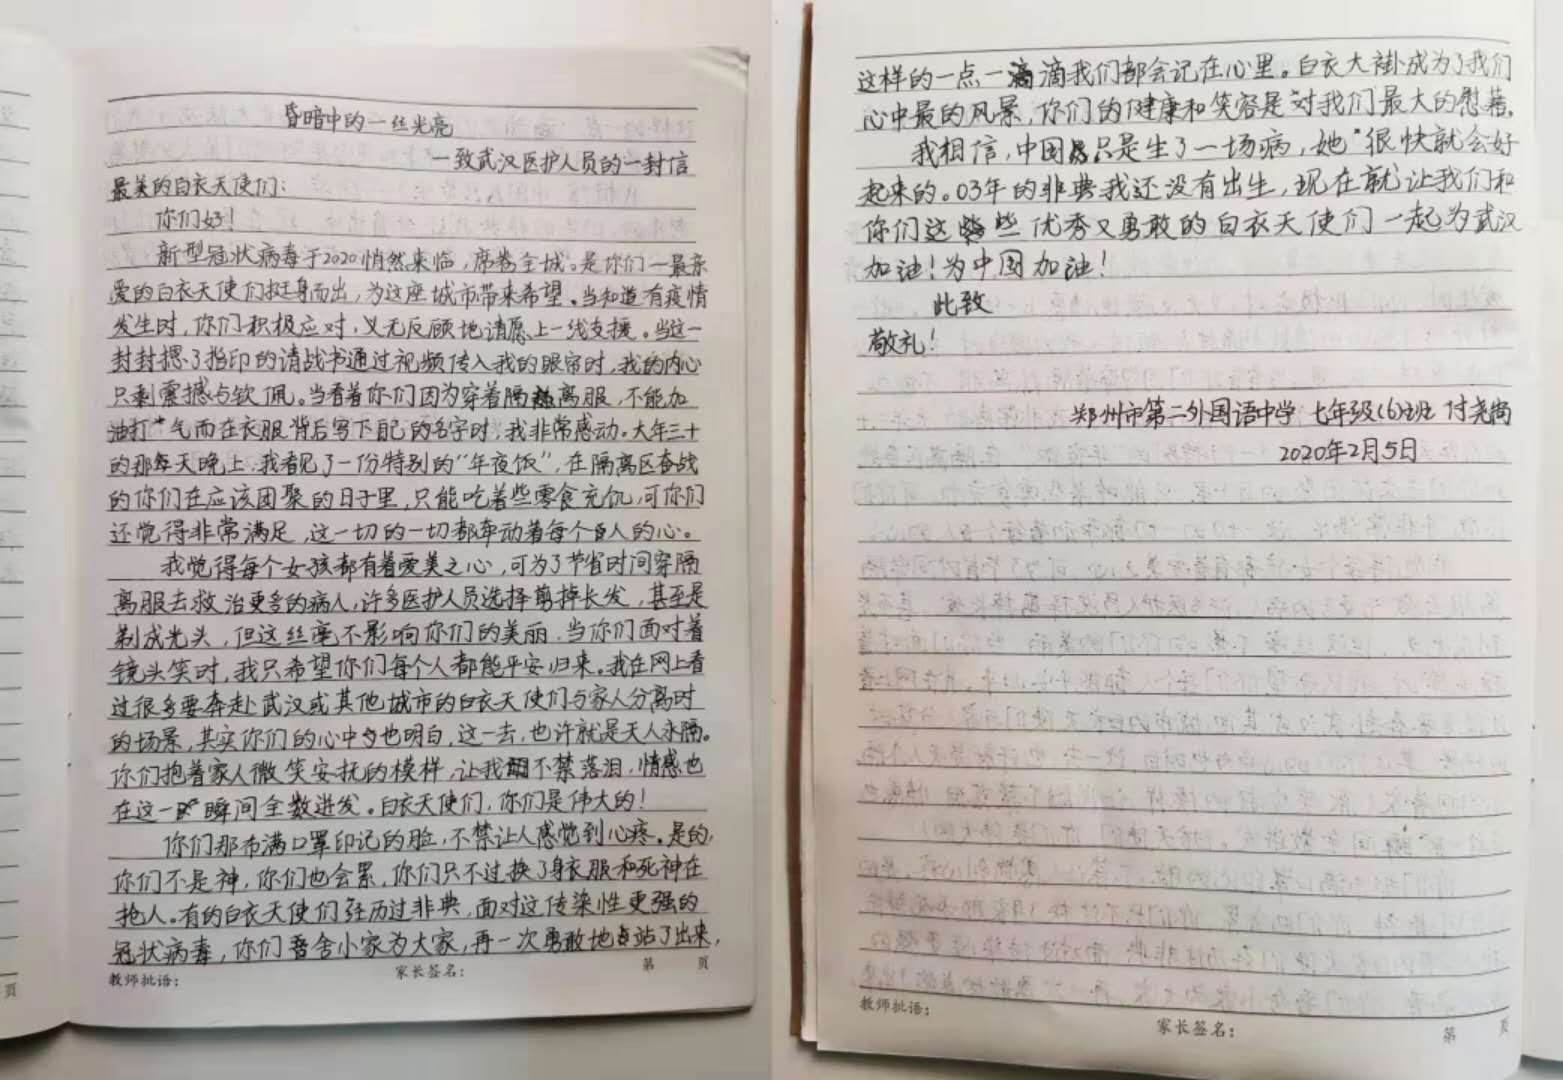 昏暗中的一丝光亮
一致武汉医护人员的一封信
最美的白衣天使们：
你们好！
新型冠状病毒于2020悄然来临，席卷全城。是你们一最亲
爱的白衣天使们挺身而出，为这座城市带来希望。当知道有疫情
发生时，你们积极应对，义无反顾地请愿上一线支援。当这一
封封摁了指印的请战书通过视频传入我的眼帘时，我的内心
只剩震撼与钦佩。当看着你们因为穿着隔离服，不能加
油打气而在衣服背后写下自己的名字时，我非常感动。大年三十
的那天晚上，我看见了一份特别的“年夜饭”，在隔离区奋战
的你们在应该团聚的日子里，只能吃着些零食充饥，可你们
还觉得非常满足，这一切的一切都牵动着每个人的心。
我觉得每个女孩都有着爱美之心，可为了节省时间穿隔
离服去救治更多的病人，许多医护人员选择剪掉长发，甚至是
剃成光头，但这丝毫不影响你们的美丽，当你们面对着
镜头笑时，我只希望你们每个人都能平安归来。我在网上看
过很多要奔赴武汉或其他城市的白衣天使们与家人分离时
的场景，其实你们的心中也明白，这一去，也许就是天人永隔。
你们抱着家人微笑安抚的模样，让我不禁落泪，情感也
在这一瞬间全数迸发。白衣天使们，你们是伟大的！
你们那布满口罩印记的脸，不禁让人感觉到心疼。是的，
你们不是神，你们也会累，你们只不过换了身衣服和死神在
抢人。有的白衣天使们经历过非典，面对这传染性更强的
冠状病毒，你们舍小家为大家，再一次勇敢地站了出来，
教师批语：
家长签名：
第 页
页
这样的一点一滴我们都会记在心里。白衣大褂成为了我们
心中最的风景，你们的健康和笑容是对我们最大的慰藉。
我相信，中国只是生了一场病，她很快就会好
起来的。03年的非典我还没有出生，现在就让我们和
你们这些优秀又勇敢的白衣天使们一起为武汉
加油！为中国加油！
此致
敬礼！
郑州市第二外国语中学 七年级(6)班 付尧尚
2020年2月5日
教师批语：
家长签名：
第 页